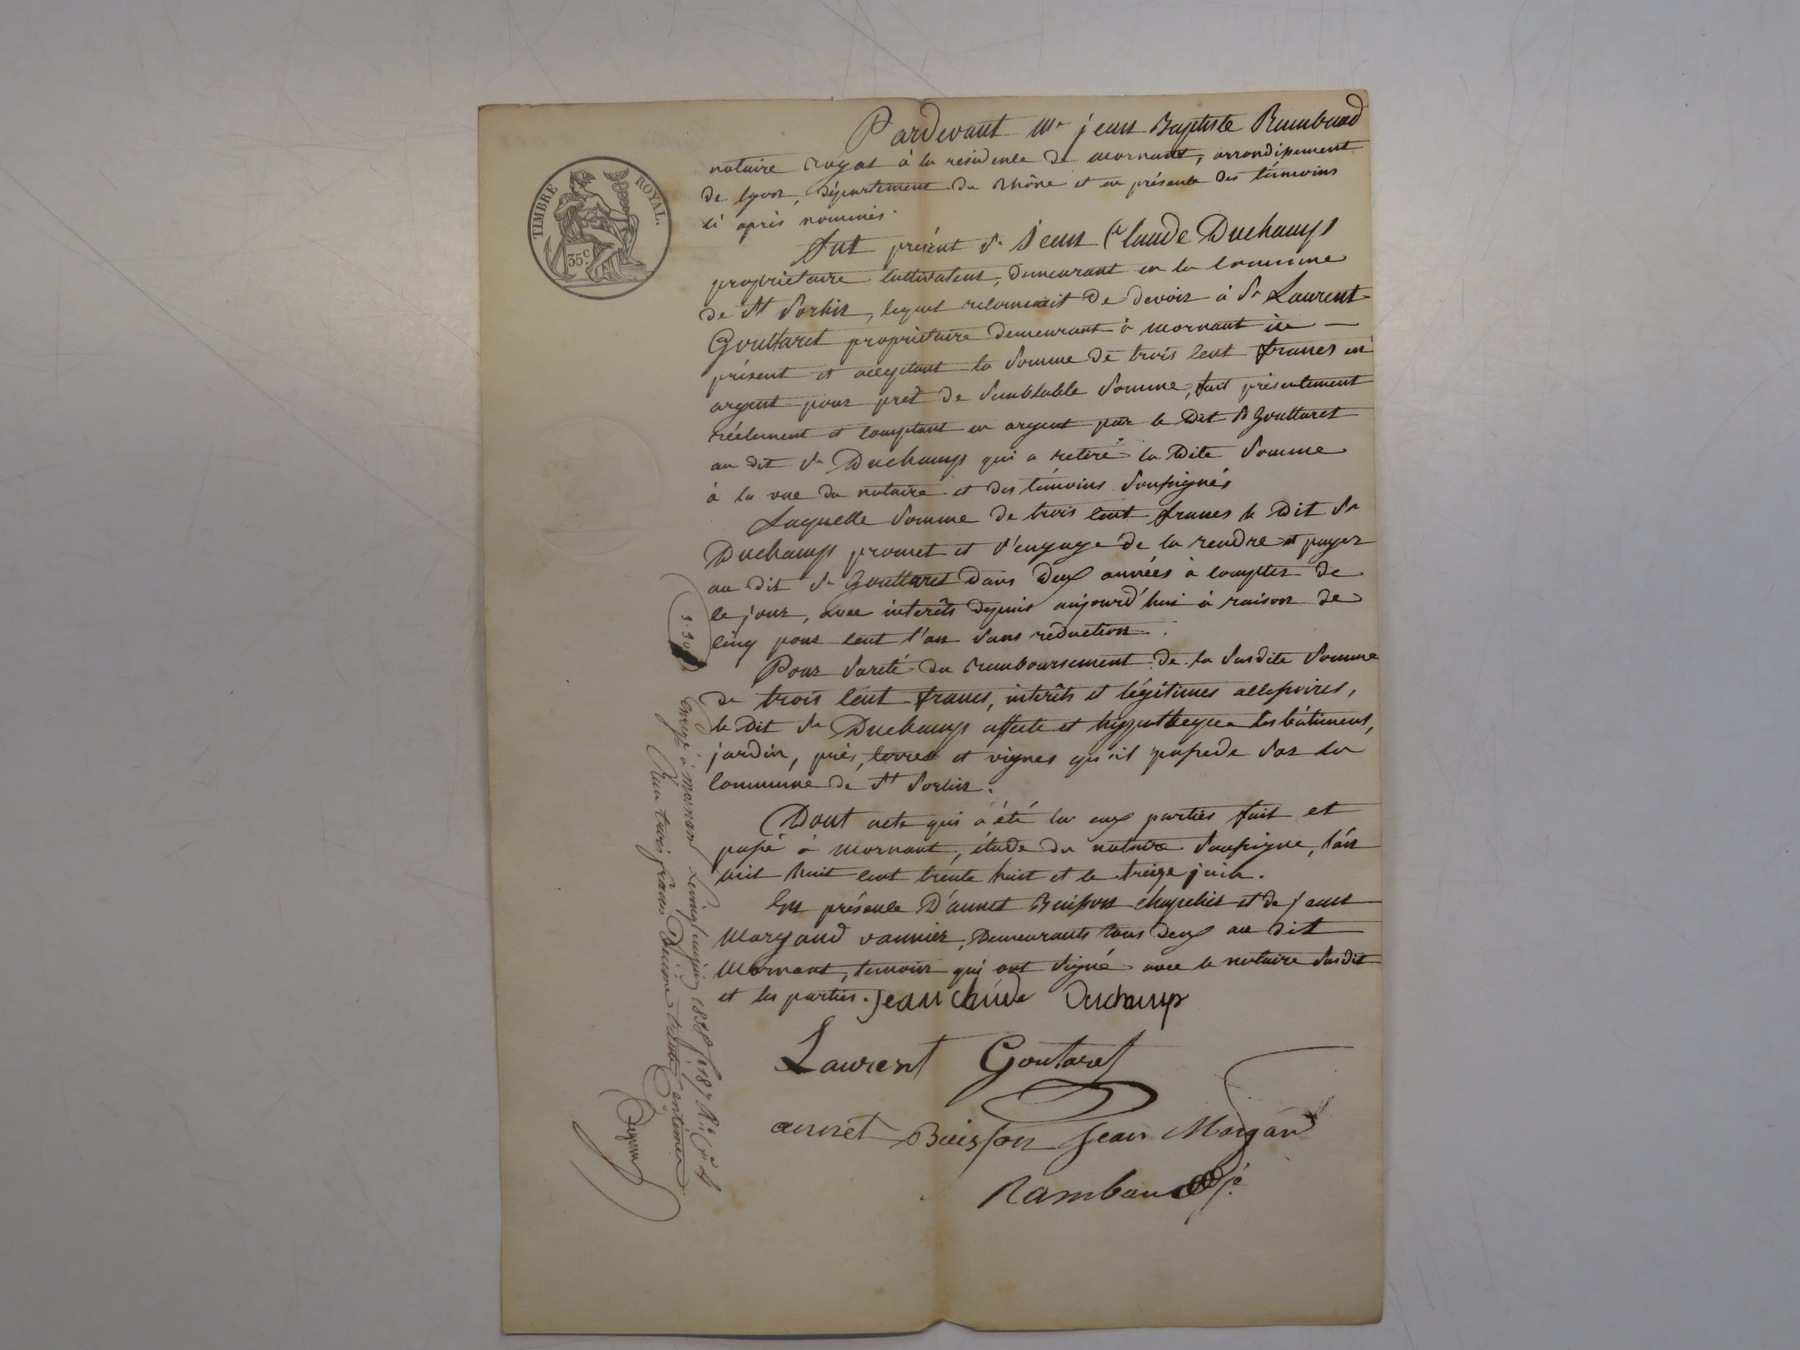 TIMBRE ROYAL.
35c.
Pardevant Me jean Baptiste Rambaud
notaire royal à la residence de mornant, arrondissement
de lyon, département du rhône et en présence des témoins
ci après nommés.
fut présent sr jean Claude Duchamp
propriétaire cultivateur, demeurant en la commune
de st sorlin, lequel reconnait de devoir à sr Laurent
Gouttaret propriétaire demeurant à mornant ici
présent et acceptant la somme de trois cent francs en
argent pour prêt de semblable somme, fait présentement
réelement et comptant en argent par le dit sr Gouttaret
au dit sr Duchamp qui a retiré la dite somme
à la vue du notaire et des témoins soussignés
Laquelle somme de trois cent francs le dit sr
Duchamp promet et s'engage de la rendre et payer
au dit sr Gouttaret dans deux années à compter de
ce jour, avec interêts depuis aujourd'hui à raison de
cinq pour cent l'an sans réduction.
Pour sureté du remboursement de la susdite somme
de trois cent francs, interêts et légitimes accessoires,
le dit sr Duchamp affecte et hypotheque les bâtimens,
jardin, près, terres et vignes qu'il possede sur la
commune de st sorlin.
Dont acte qui a été lu aux parties fait et
passé à mornant, étude du notaire soussigné, l'an
mil huit cent trente huit et le treize juin.
En présence d'annet Buisson chapelier et de jean
Margand vannier, demeurants tous deux au dit
Mornant, temoins qui ont signé avec le notaire susdit
et les parties. jean claude Duchamp
Laurent Goutaret
annet Buisson Jean Margand
Rambaud
Enregé à mornant le vingt juin 1838 fo 187
Reçu trois francs Dixième trente centimes